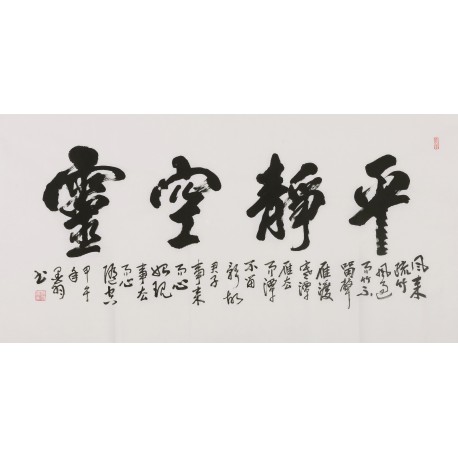 平靜空靈
風來
疏竹
風過
而竹不
留聲
雁渡
寒潭
雁去
而潭
不留
影故
君子
事來
而心
始現
事去
而心
隨空
甲午
年
墨翁
書